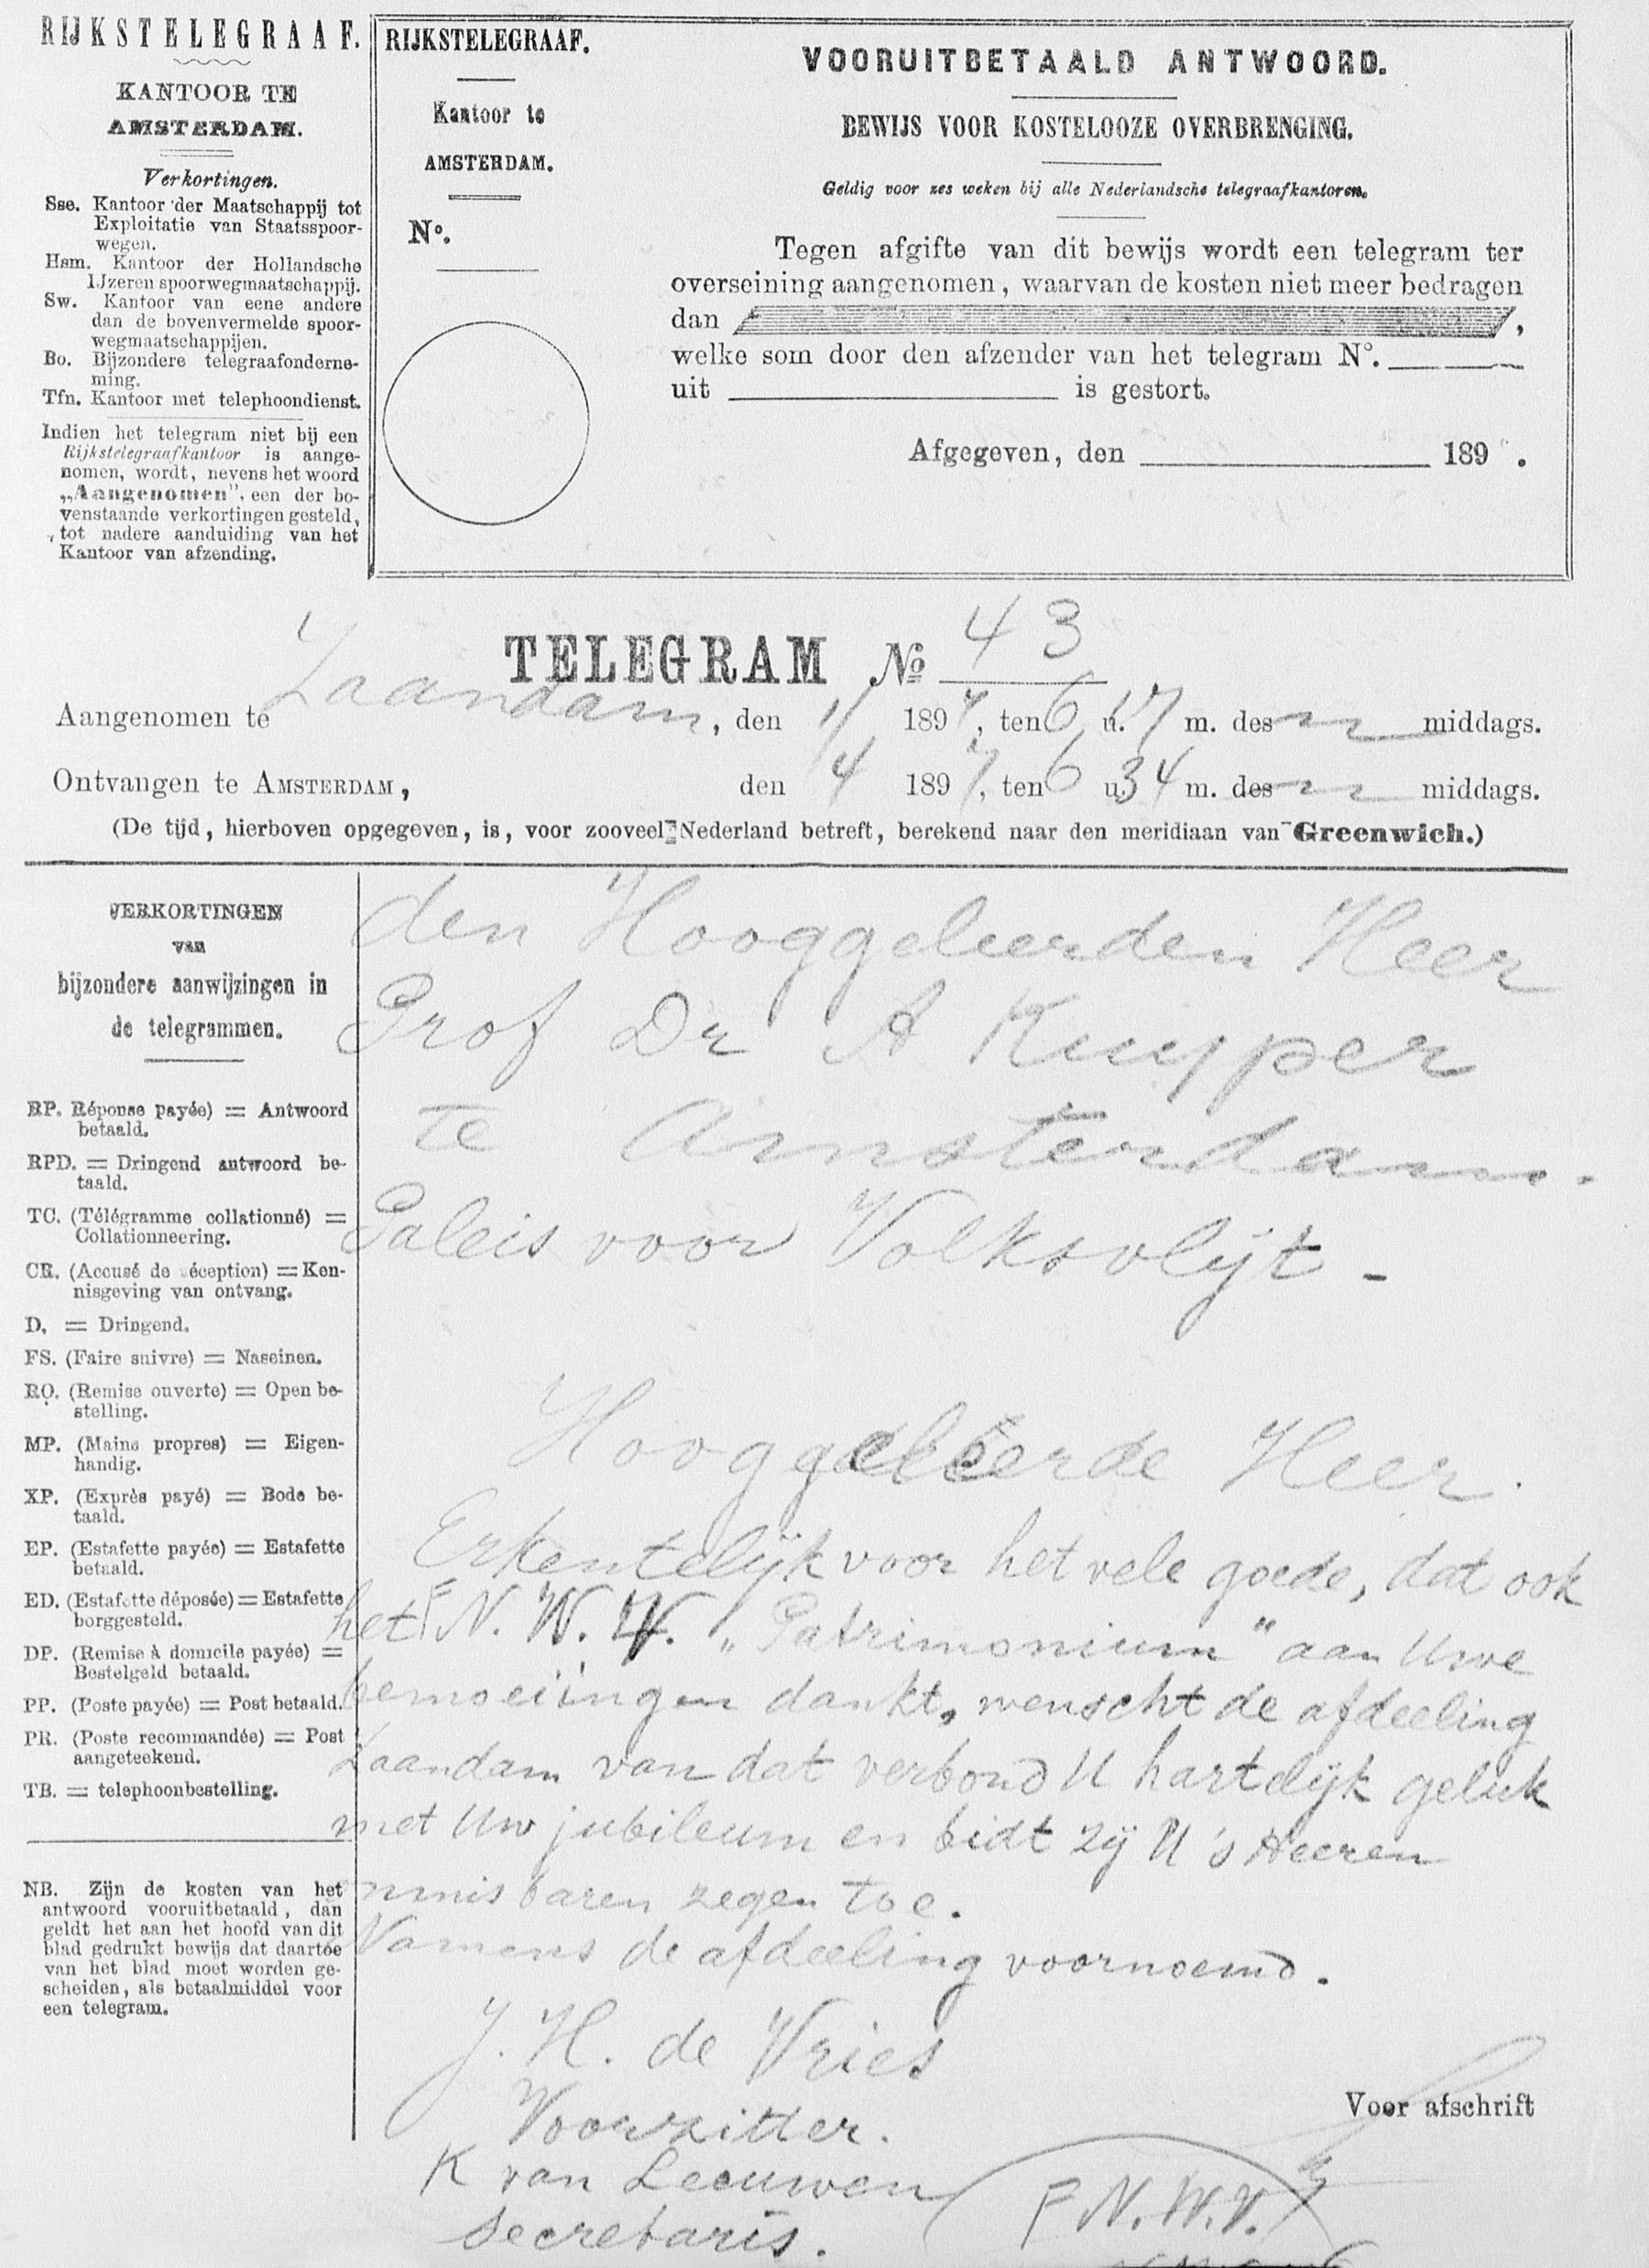 RIJKSTELEGRAAF.
KANTOOR TE
AMSTERDAM.
Verkortingen.
Sse. Kantoor der Maatschappij tot
Exploitatie van Staatsspoor-
wegen.
Hsm. Kantoor der Hollandsche
IJzeren spoorwegmaatschappij.
Sw. Kantoor van eene andere
dan de bovenvermelde spoor-
wegmaatschappijen.
Bo. Bijzondere telegraafonderne-
ming.
Tfn. Kantoor met telephoondienst.
Indien het telegram niet bij een
Rijkstelegraafkantoor is aange-
nomen, wordt, nevens het woord
„Aangenomen", een der bo-
venstaande verkortingen gesteld,
tot nadere aanduiding van het
Kantoor van afzending.
RIJKSTELEGRAAF.
Kantoor te
AMSTERDAM.
No.
VOORUITBETAALD ANTWOORD.
BEWIJS VOOR KOSTELOOZE OVERBRENGING.
Geldig voor zes weken bij alle Nederlandsche telegraafkantoren.
Tegen afgifte van dit bewijs wordt een telegram ter
overseining aangenomen, waarvan de kosten niet meer bedragen
dan ,
welke som door den afzender van het telegram No.
uit is gestort.
Afgegeven, den 189 .
TELEGRAM No 43
Aangenomen te Zaandam, den 1/ 1897, ten 6 u. 17 m. des n middags.
Ontvangen te AMSTERDAM, den /4 1897, ten 6 u. 34 m. des n middags.
(De tijd, hierboven opgegeven, is, voor zooveel Nederland betreft, berekend naar den meridiaan van Greenwich.)
VERKORTINGEN
van
bijzondere aanwijzingen in
de telegrammen.
RP. Réponse payée) = Antwoord
betaald.
RPD. = Dringend antwoord be-
taald.
TC. (Télégramme collationné) =
Collationneering.
CR. (Accusé de réception) = Ken-
nisgeving van ontvang.
D. = Dringend.
FS. (Faire suivre) = Naseinen.
RO. (Remise ouverte) = Open be-
stelling.
MP. (Mains propres) = Eigen-
handig.
XP. (Exprès payé) = Bode be-
taald.
EP. (Estafette payée) = Estafette
betaald.
ED. (Estafette déposée) = Estafette
borggesteld.
DP. (Remise à domicile payée) =
Bestelgeld betaald.
PP. (Poste payée) = Post betaald.
PR. (Poste recommandée) = Post
aangeteekend.
TB. = telephoonbestelling.
NB. Zijn de kosten van het
antwoord vooruitbetaald, dan
geldt het aan het hoofd van dit
blad gedrukt bewijs dat daartoe
van het blad moet worden ge-
scheiden, als betaalmiddel voor
een telegram.
den Hooggeleerden Heer
Prof Dr A Kuyper
te Amsterdam.
Paleis voor Volksvlijt -
Hooggeleerde Heer.
Erkentelijk voor het vele goede, dat ook
het N. W. V. „Patrimonium" aan Uwe
bemoeiïngen dankt, wenscht de afdeeling
Zaandam van dat verbond U hartelijk geluk
met Uw jubileum en bidt zij U 's Heeren
onmisbaren zegen toe.
Namens de afdeeling voornoemd.
J. H. de Vries
Voorzitter.
K van Leeuwen
Secretaris.
Voor afschrift
F N. W. V.